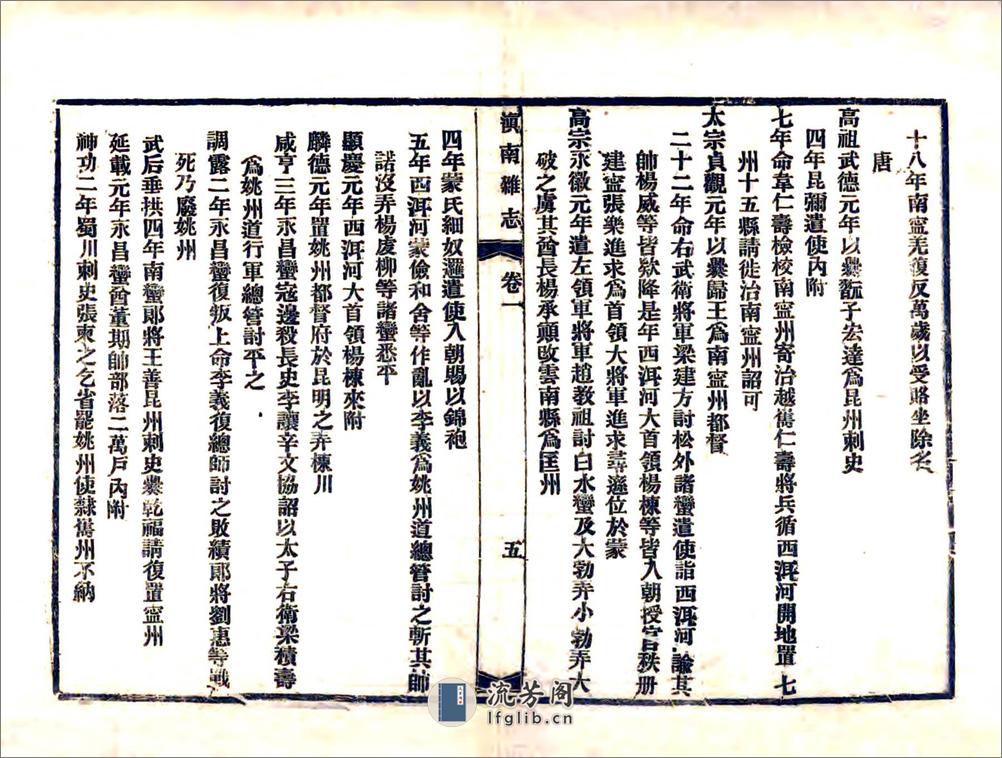 十八年南寧羌復反萬歲以受賂坐除名
唐
高祖武德元年以爨翫子宏達為昆州刺史
四年昆彌遣使內附
七年命韋仁壽檢校南寧州寄治越巂仁壽將兵循西洱河開地置七
州十五縣請徙治南寧州詔可
太宗貞觀元年以爨歸王為南寧州都督
二十二年命右武衛將軍梁建方討松外諸蠻遣使詣西洱河諭其
帥楊威等皆欵降是年西洱河大首領楊棟等皆入朝授官秩册
建寧張樂進求為首領大將軍進求尋遜位於蒙
高宗永徽元年遣左領軍將軍趙教祖討白水蠻及大勃弄小勃弄大
破之虜其酋長楊承顛改雲南縣為匡州
滇南雜志
卷一
五
四年蒙氏細奴邏遣使入朝賜以錦袍
五年西洱河蒙儉和舍等作亂以李義為姚州道總管討之斬其帥
諾沒弄楊虔柳等諸蠻悉平
顯慶元年西洱河大首領楊棟來附
麟德元年置姚州都督府於昆明之弄棟川
咸亨三年永昌蠻寇邊殺長史李讓辛文協詔以太子右衛梁積壽
為姚州道行軍總管討平之
調露二年永昌蠻復叛上命李義復總師討之敗績郎將劉惠等戰
死乃廢姚州
武后垂拱四年南蠻郎將王善昆州刺史爨乾福請復置寧州
延載元年永昌蠻酋董期帥部落二萬戶內附
神功二年蜀川刺史張柬之乞省罷姚州使隸巂州不納
流芳阁
lfglib.cn